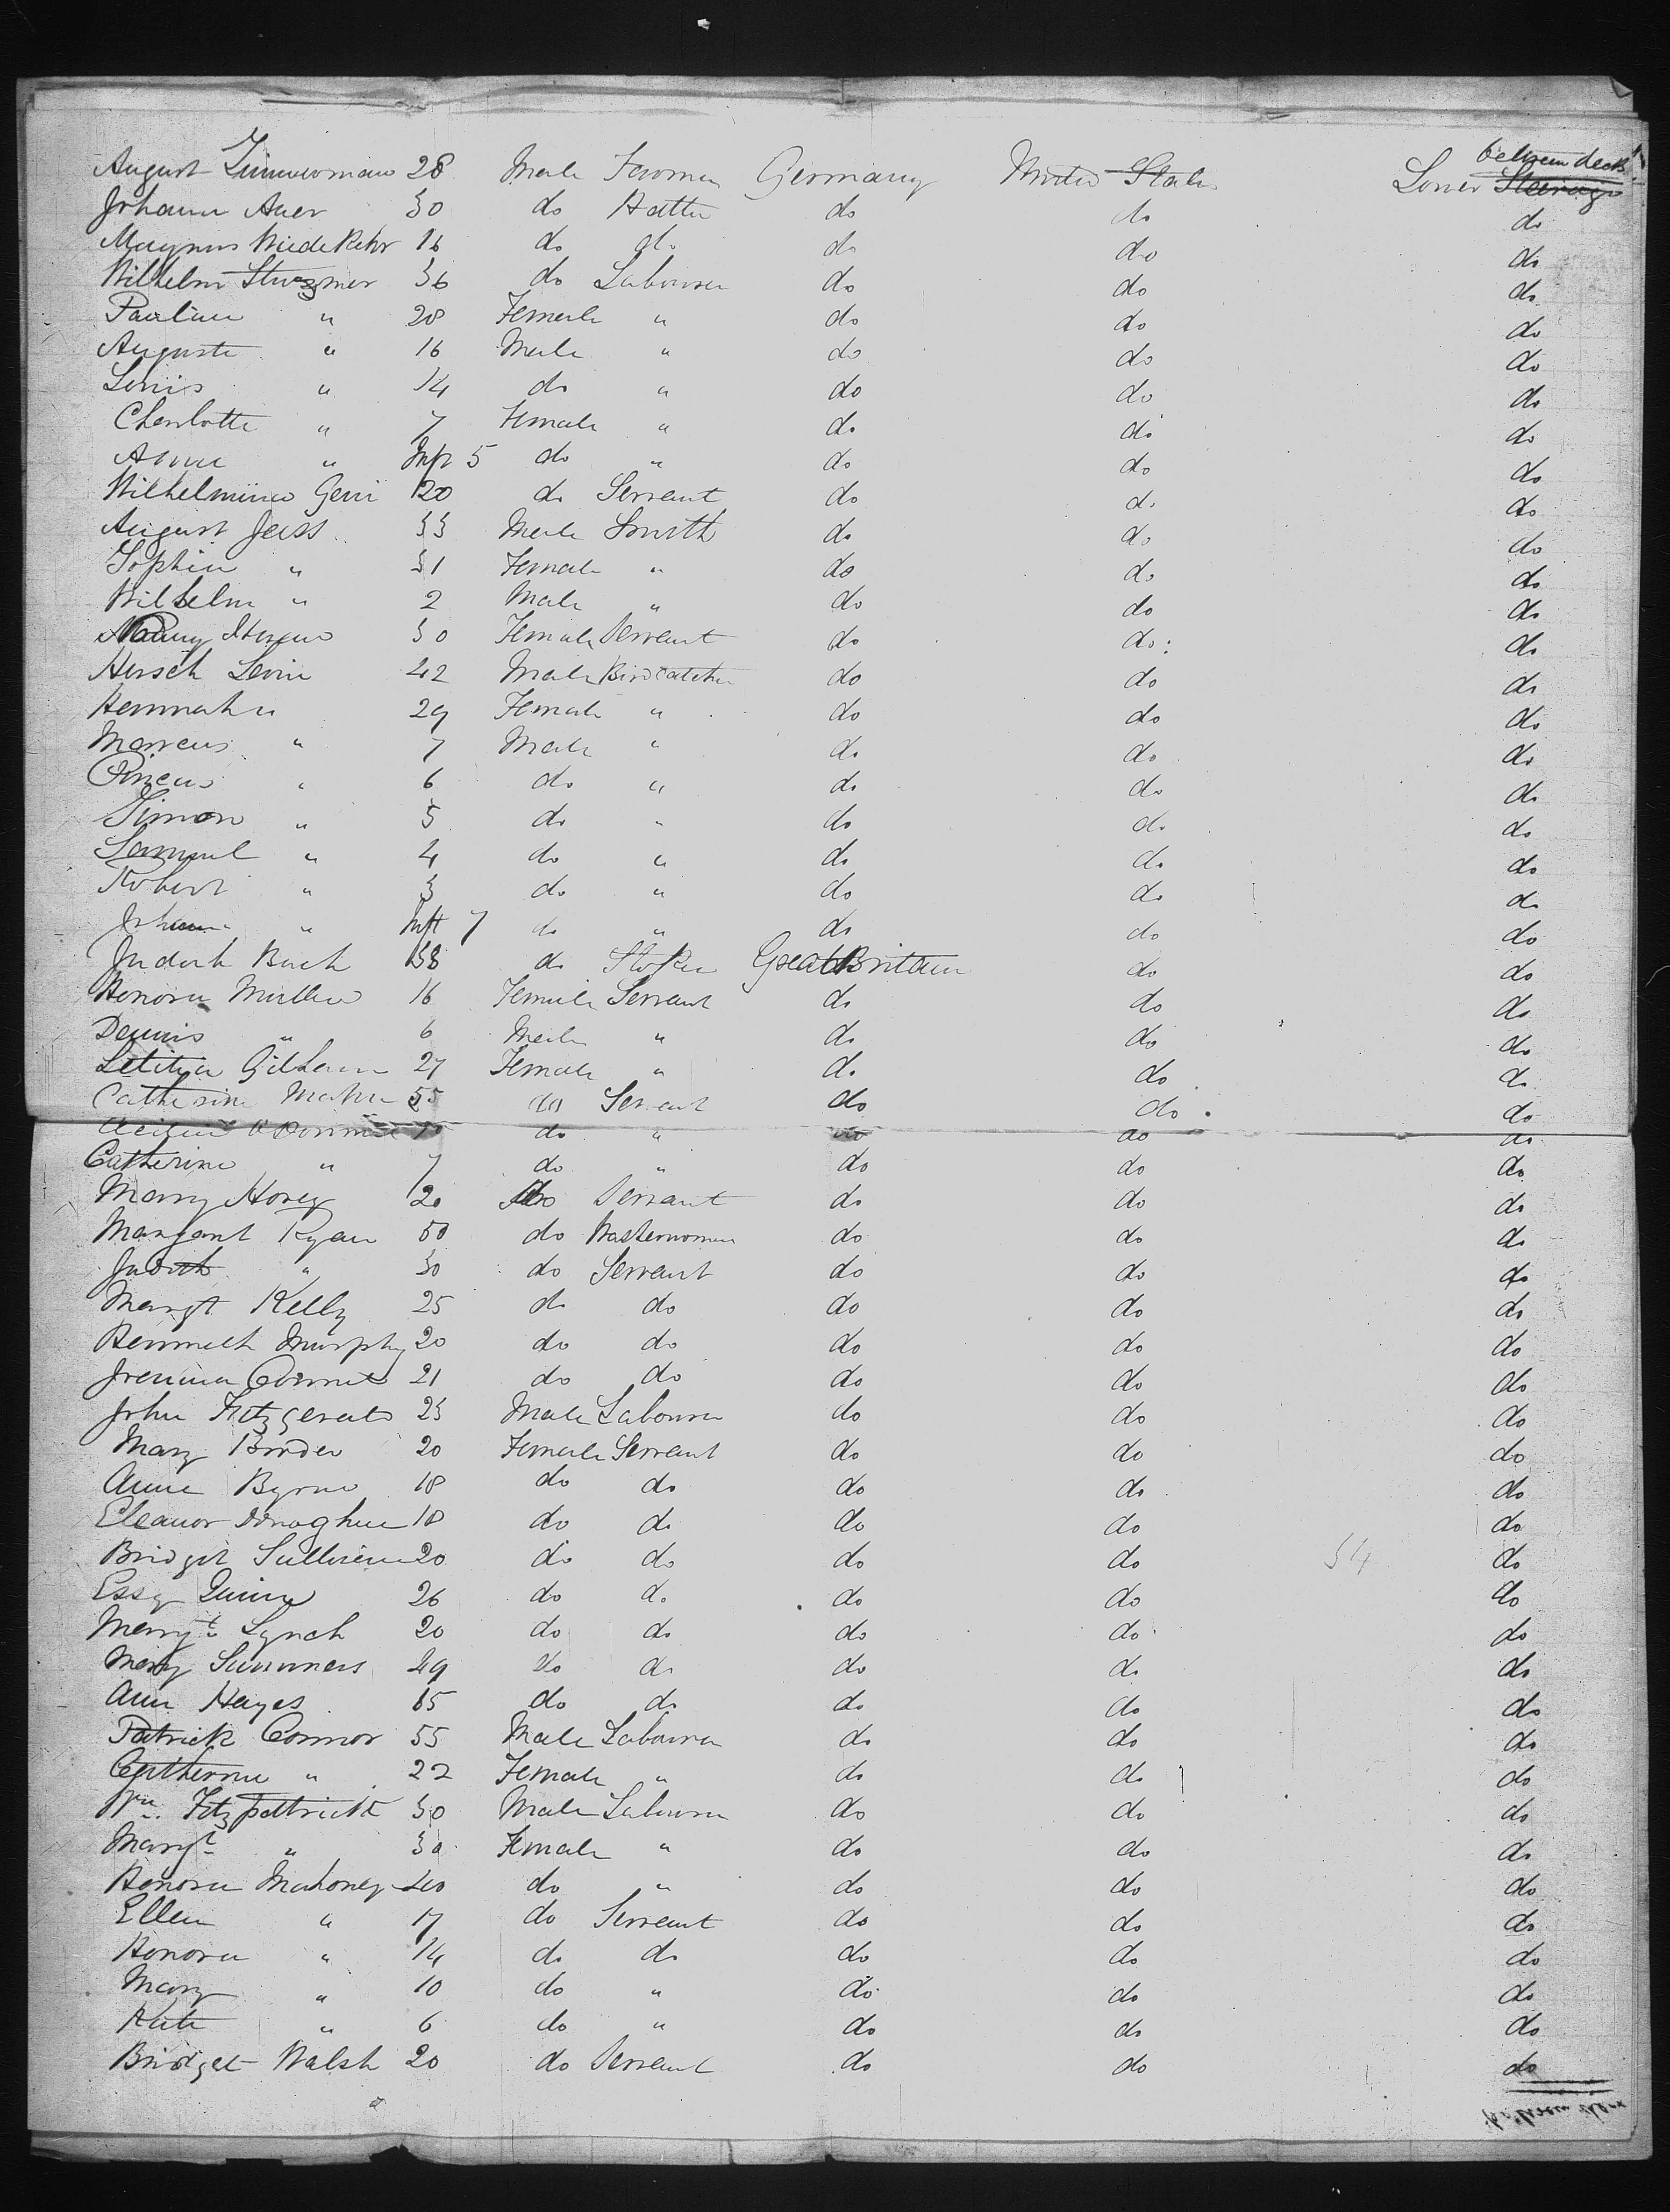 between decks
August Zimmerman 28 Male Farmer Germany United States Lower Steerage
Johann Auer 30 do Hatter do do do
Magnus Wiedekehr 16 do do do do do
Wilhelm 36 do Labourer do do do
Pauline " 28 Female " do do do
Auguste " 16 Male " do do do
Louis " 14 do " do do do
Charlotte " 7 Female " do do do
Anna " Inft 5 do " do do do
Wilhelmina 20 do Servant do do do
August Jeiss 33 Male Smith do do do
Sophia " 31 Female " do do do
Wilhelm " 2 Male " do do do
30 Female Servant do do do
Hersch Levin 42 Male Birdcatcher do do do
Hannah " 29 Female " do do do
Marcus " 7 Male " do do do
Pincus " 6 do " do do do
Simon " 5 do " do do do
Samuel " 4 do " do do do
Robert " 3 do " do do do
Johann " Inft 7 do " do do do
Bach 38 do Great Britain do do
Honora Mullen 16 Female Servant do do do
Dennis " 6 Male " do do do
Letitia 27 Female " do do do
Catherine Maher 55 do Servant do do do
do " do do do
Catherine " 7 do " do do do
Mary Horey 20 do Servant do do do
Margaret Ryan 50 do Washerwoman do do do
Judith " 30 do Servant do do do
Margt Kelly 25 do do do do do
Hannah Murphy 20 do do do do do
21 do do do do do
John Fitzgerald 23 Male Labourer do do do
Mary 20 Female Servant do do do
Anne Byrne 18 do do do do do
Eleanor Donaghue 18 do do do do do
Bridget Sullivan 20 do do do do 54 do
Essy Quinn 26 do do do do do
Margt Lynch 20 do do do do do
Mary Summers 49 do do do do do
Ann Hayes 65 do do do do do
Patrick Connor 55 Male Labourer do do do
Catherine " 22 Female " do do do
Wm. Fitzpattrick 30 Male Labourer do do do
Margt " 30 Female " do do do
Honora Mahoney 40 do " do do do
Ellen " 17 do Servant do do do
Honora " 14 do do do do do
Mary " 10 do " do do do
Kate " 6 do " do do do
Bridget Walsh 20 do Servant do do do
between decks